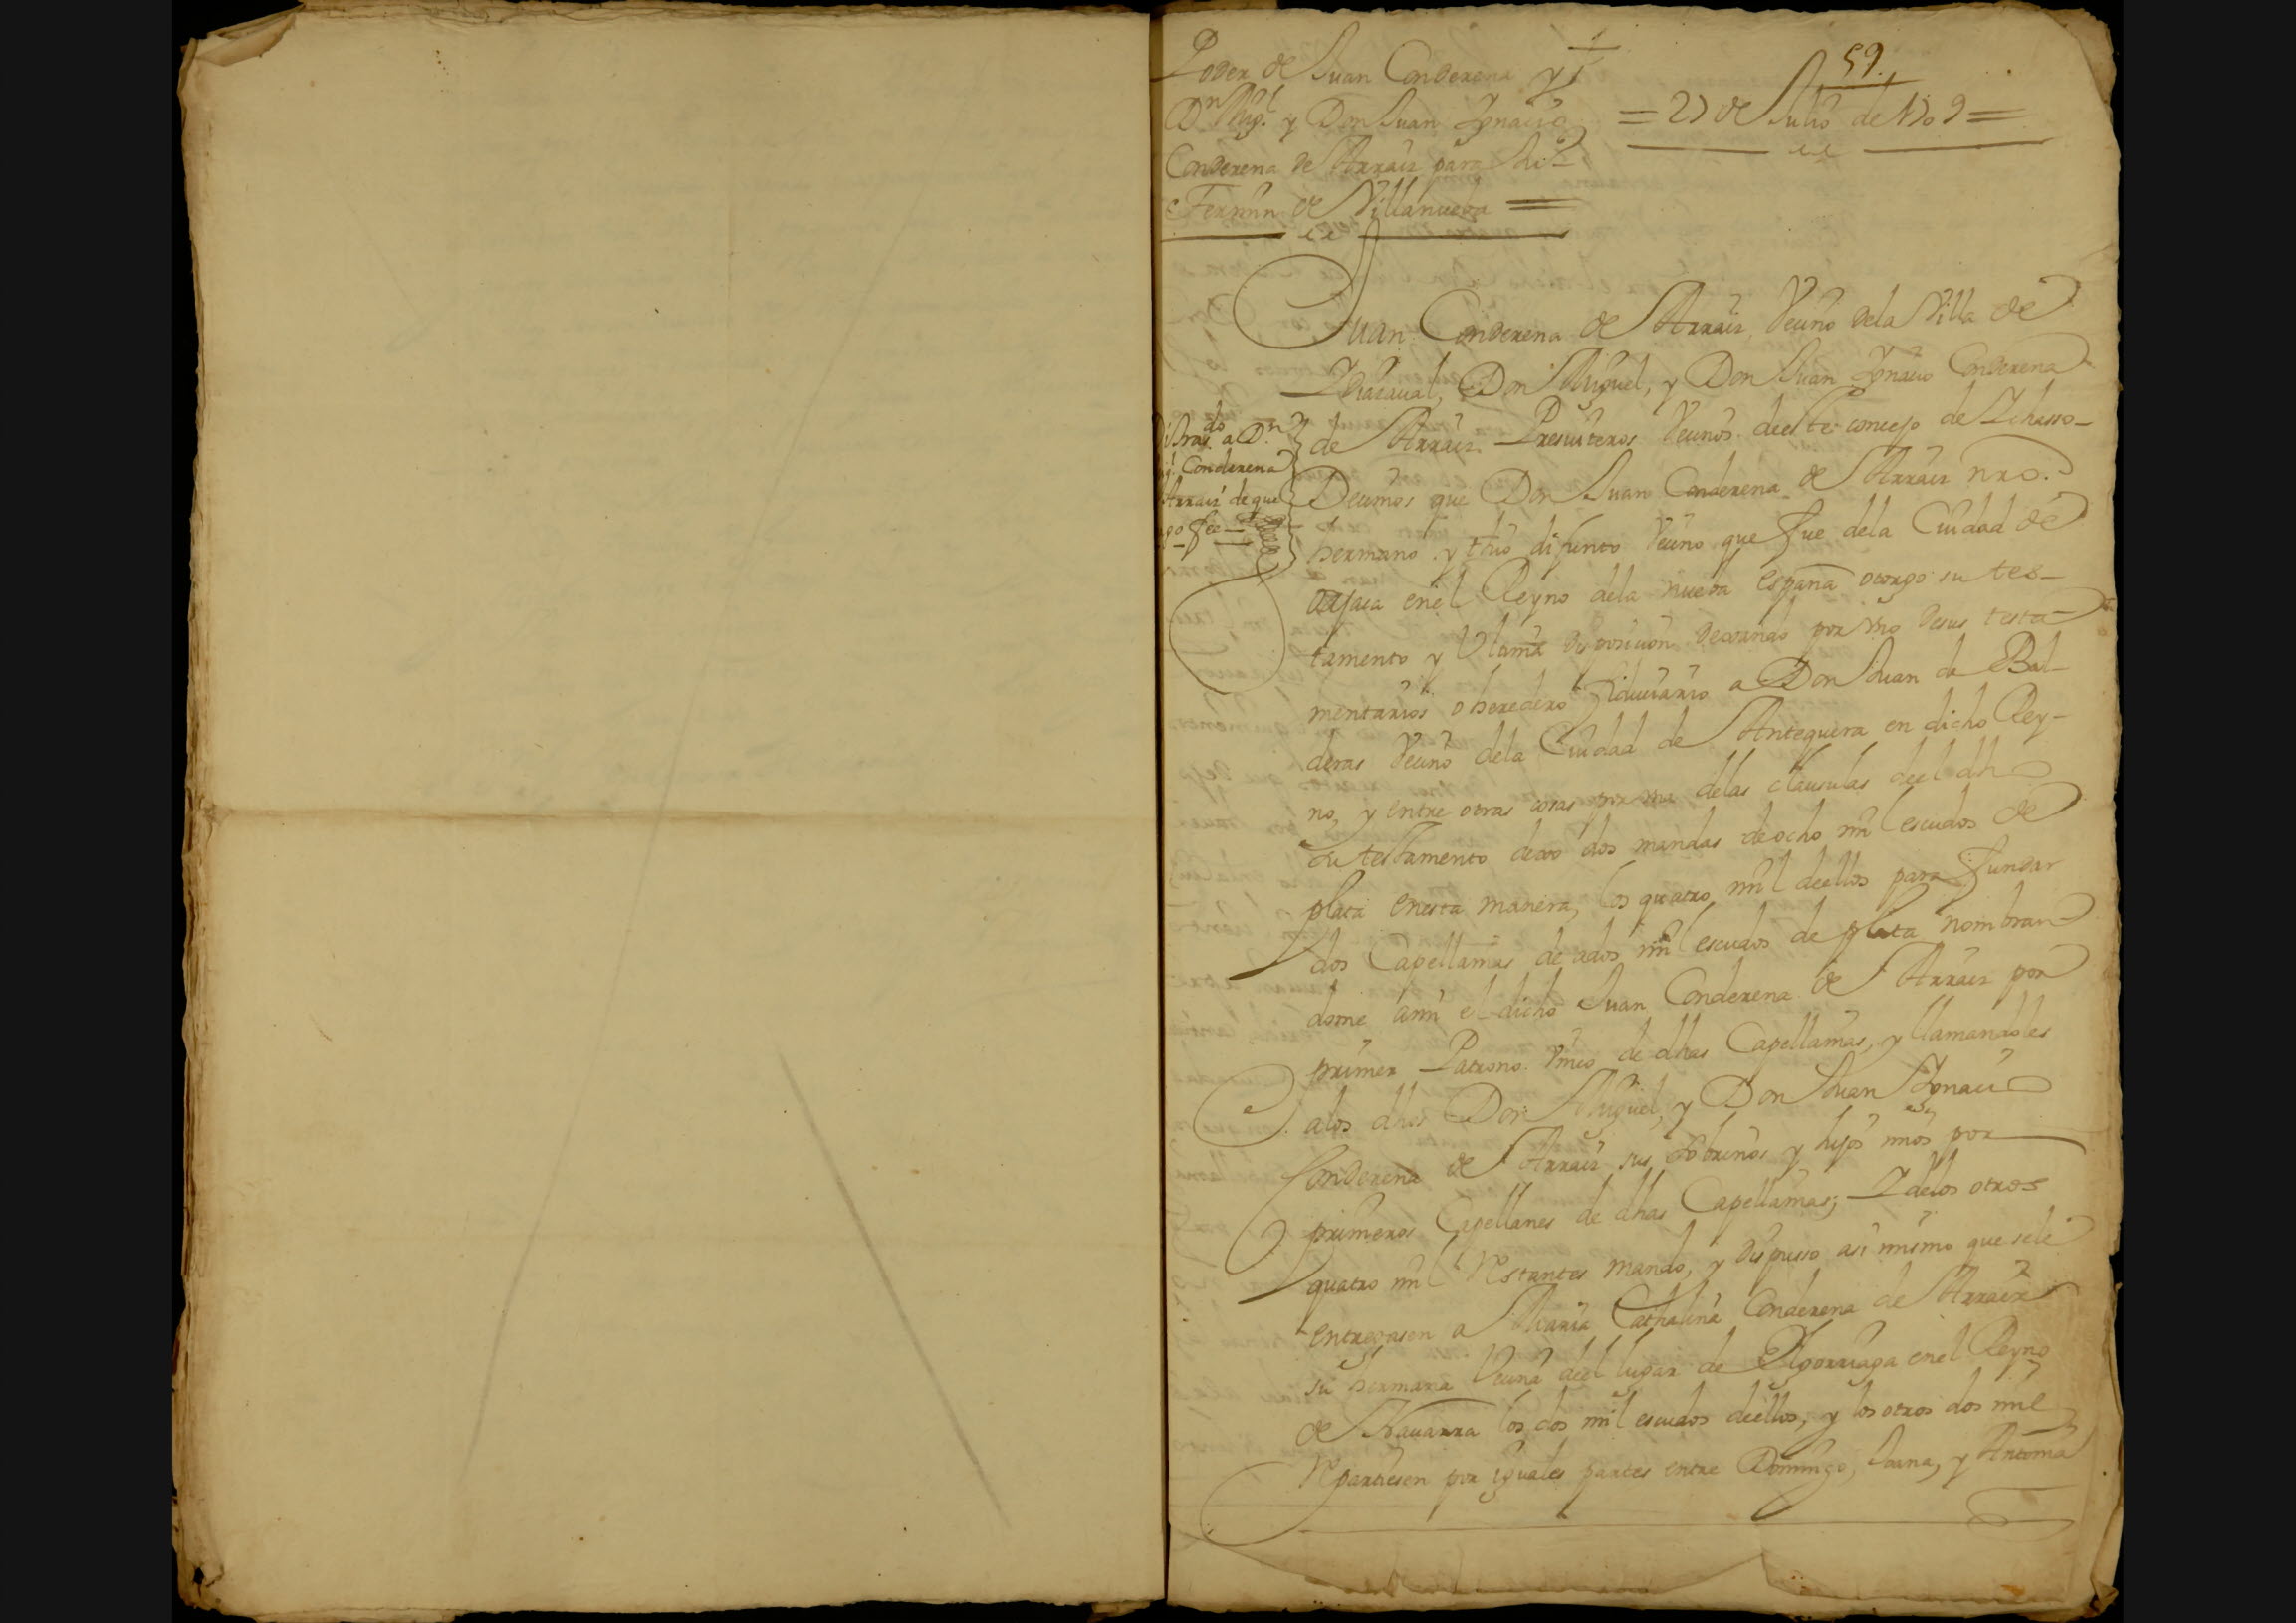 59.
Poder de Juan Conderena y
Dn Migl. y Don Juan Ygnacio
Conderena de Arraiz para
Fermin de Villanueba =
= 27 de Julio de 1709 =
Juan Conderena de Arraiz Vecino dela Villa de
Don Miguel, y Don Juan Ygnacio Conderena
de Arraiz Presviteros Vecinos deeste concejo de
Decimos que Don Juan Conderena de Arraiz nro.
hermano y thio difunto Vecino que fue dela Ciudad de
Oajaca enel Reyno dela nueva españa otorgo su tes-
tamento y Ultima disposicion dexando por vno desus testa
mentarios o heredero fiduciario a Don Juan de Bal-
deras Vecino dela Ciudad de Antequera en dicho Rey-
no, y entre otras cosas por vna delas clausulas deel dho
su testamento dexo dos mandas de ocho mil escudos de
plata enesta manera, los quatro mil deellos para fundar
dos Capellanias de ados mil escudos de plata nombran
dome ami el dicho Juan Conderena de Arraiz por
primer Patrono Vnico de dhas Capellanias, y llamandoles
alos dhos Don Miguel, y Don Juan Ygnacio
Conderena de Arraiz sus sobrinos y hijos mios por
primeros Capellanes de dhas Capellanias; Y delos otros
quatro mil Restantes mando, y dispusso asi mismo que sele
entregasen a Maria Cathalina Conderena de Arraiz
su hermana Vecina deel lugar de Elgorriaga enel Reyno
de Navarra los dos mil escudos deellos, y los otros dos mil
Repartiesen por iguales partes entre Domingo, Joana, y Antonia
a Dn
Conderena
Arraiz de que
fee